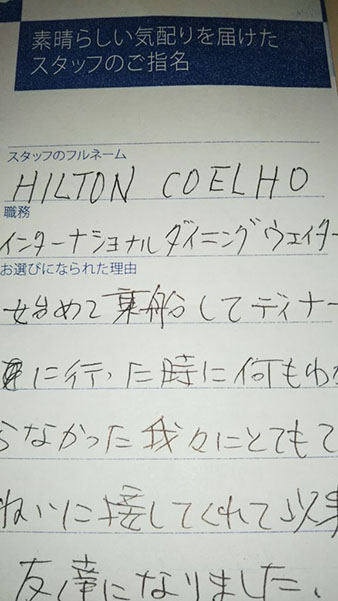 素晴らしい気配りを届けた
スタッフのご指名
スタッフのフルネーム
HILTON COELHO
職務
インターナショナルダイニングウェイター
お選びになられた理由
始めて乗船してディナー
に行った時に何もわか
らなかった我々にとてもて
ねいに接してくれて以来
友達になりました、